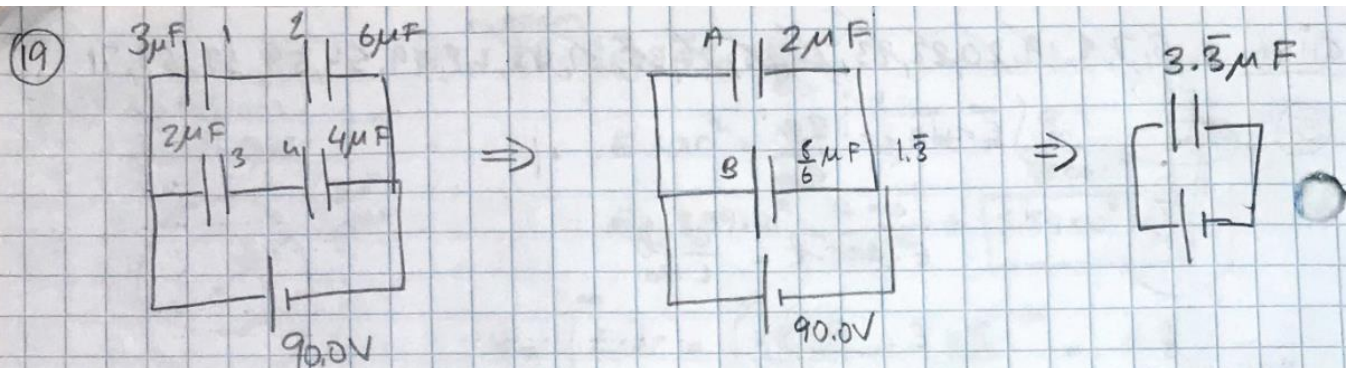 19
3μF 1 2 6μF
2μF 3 4 4μF
90.0V
⇒
A 2μF
B 8/6 μF 1.3̅
90.0V
⇒
3.3̅μF